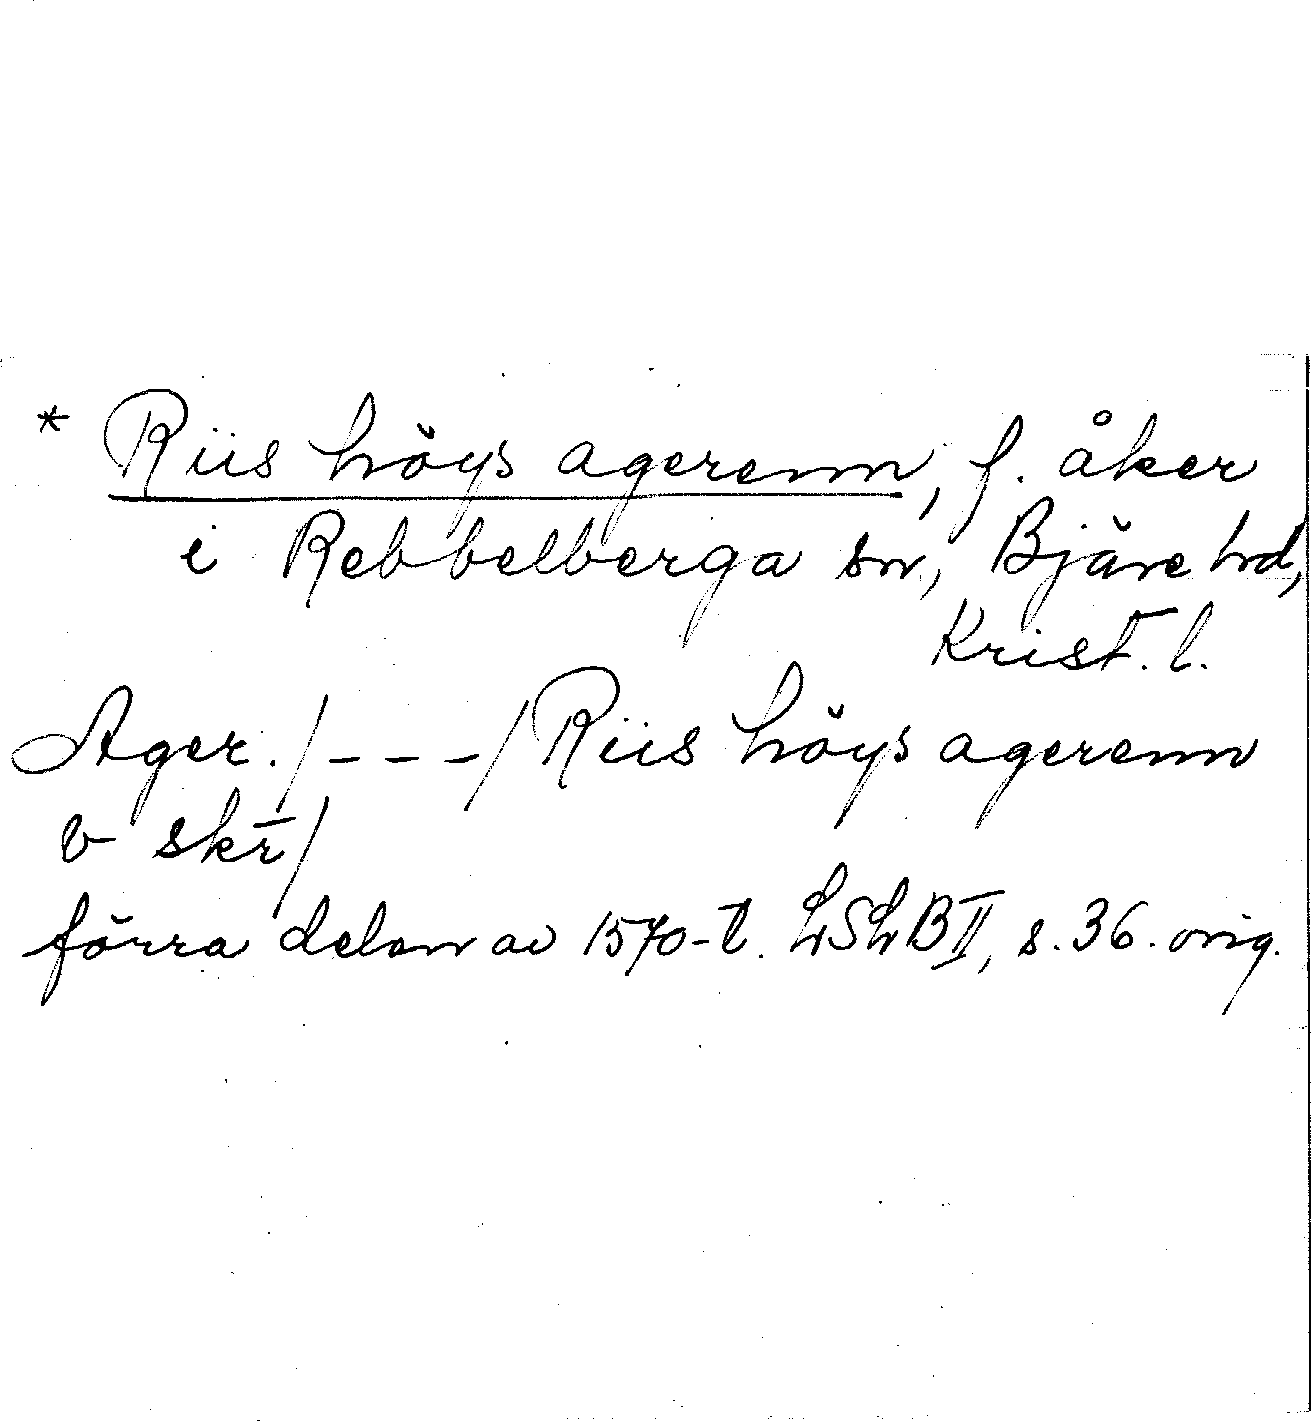 * Riis höys agerenn, f. åker
i Rebbelberga sn, Bjäre hd,
Krist. l.
Ager. /---/ Riis höys agerenn
v skr̄/
förra delen av 1570-t. LSLB II, s. 36. orig.